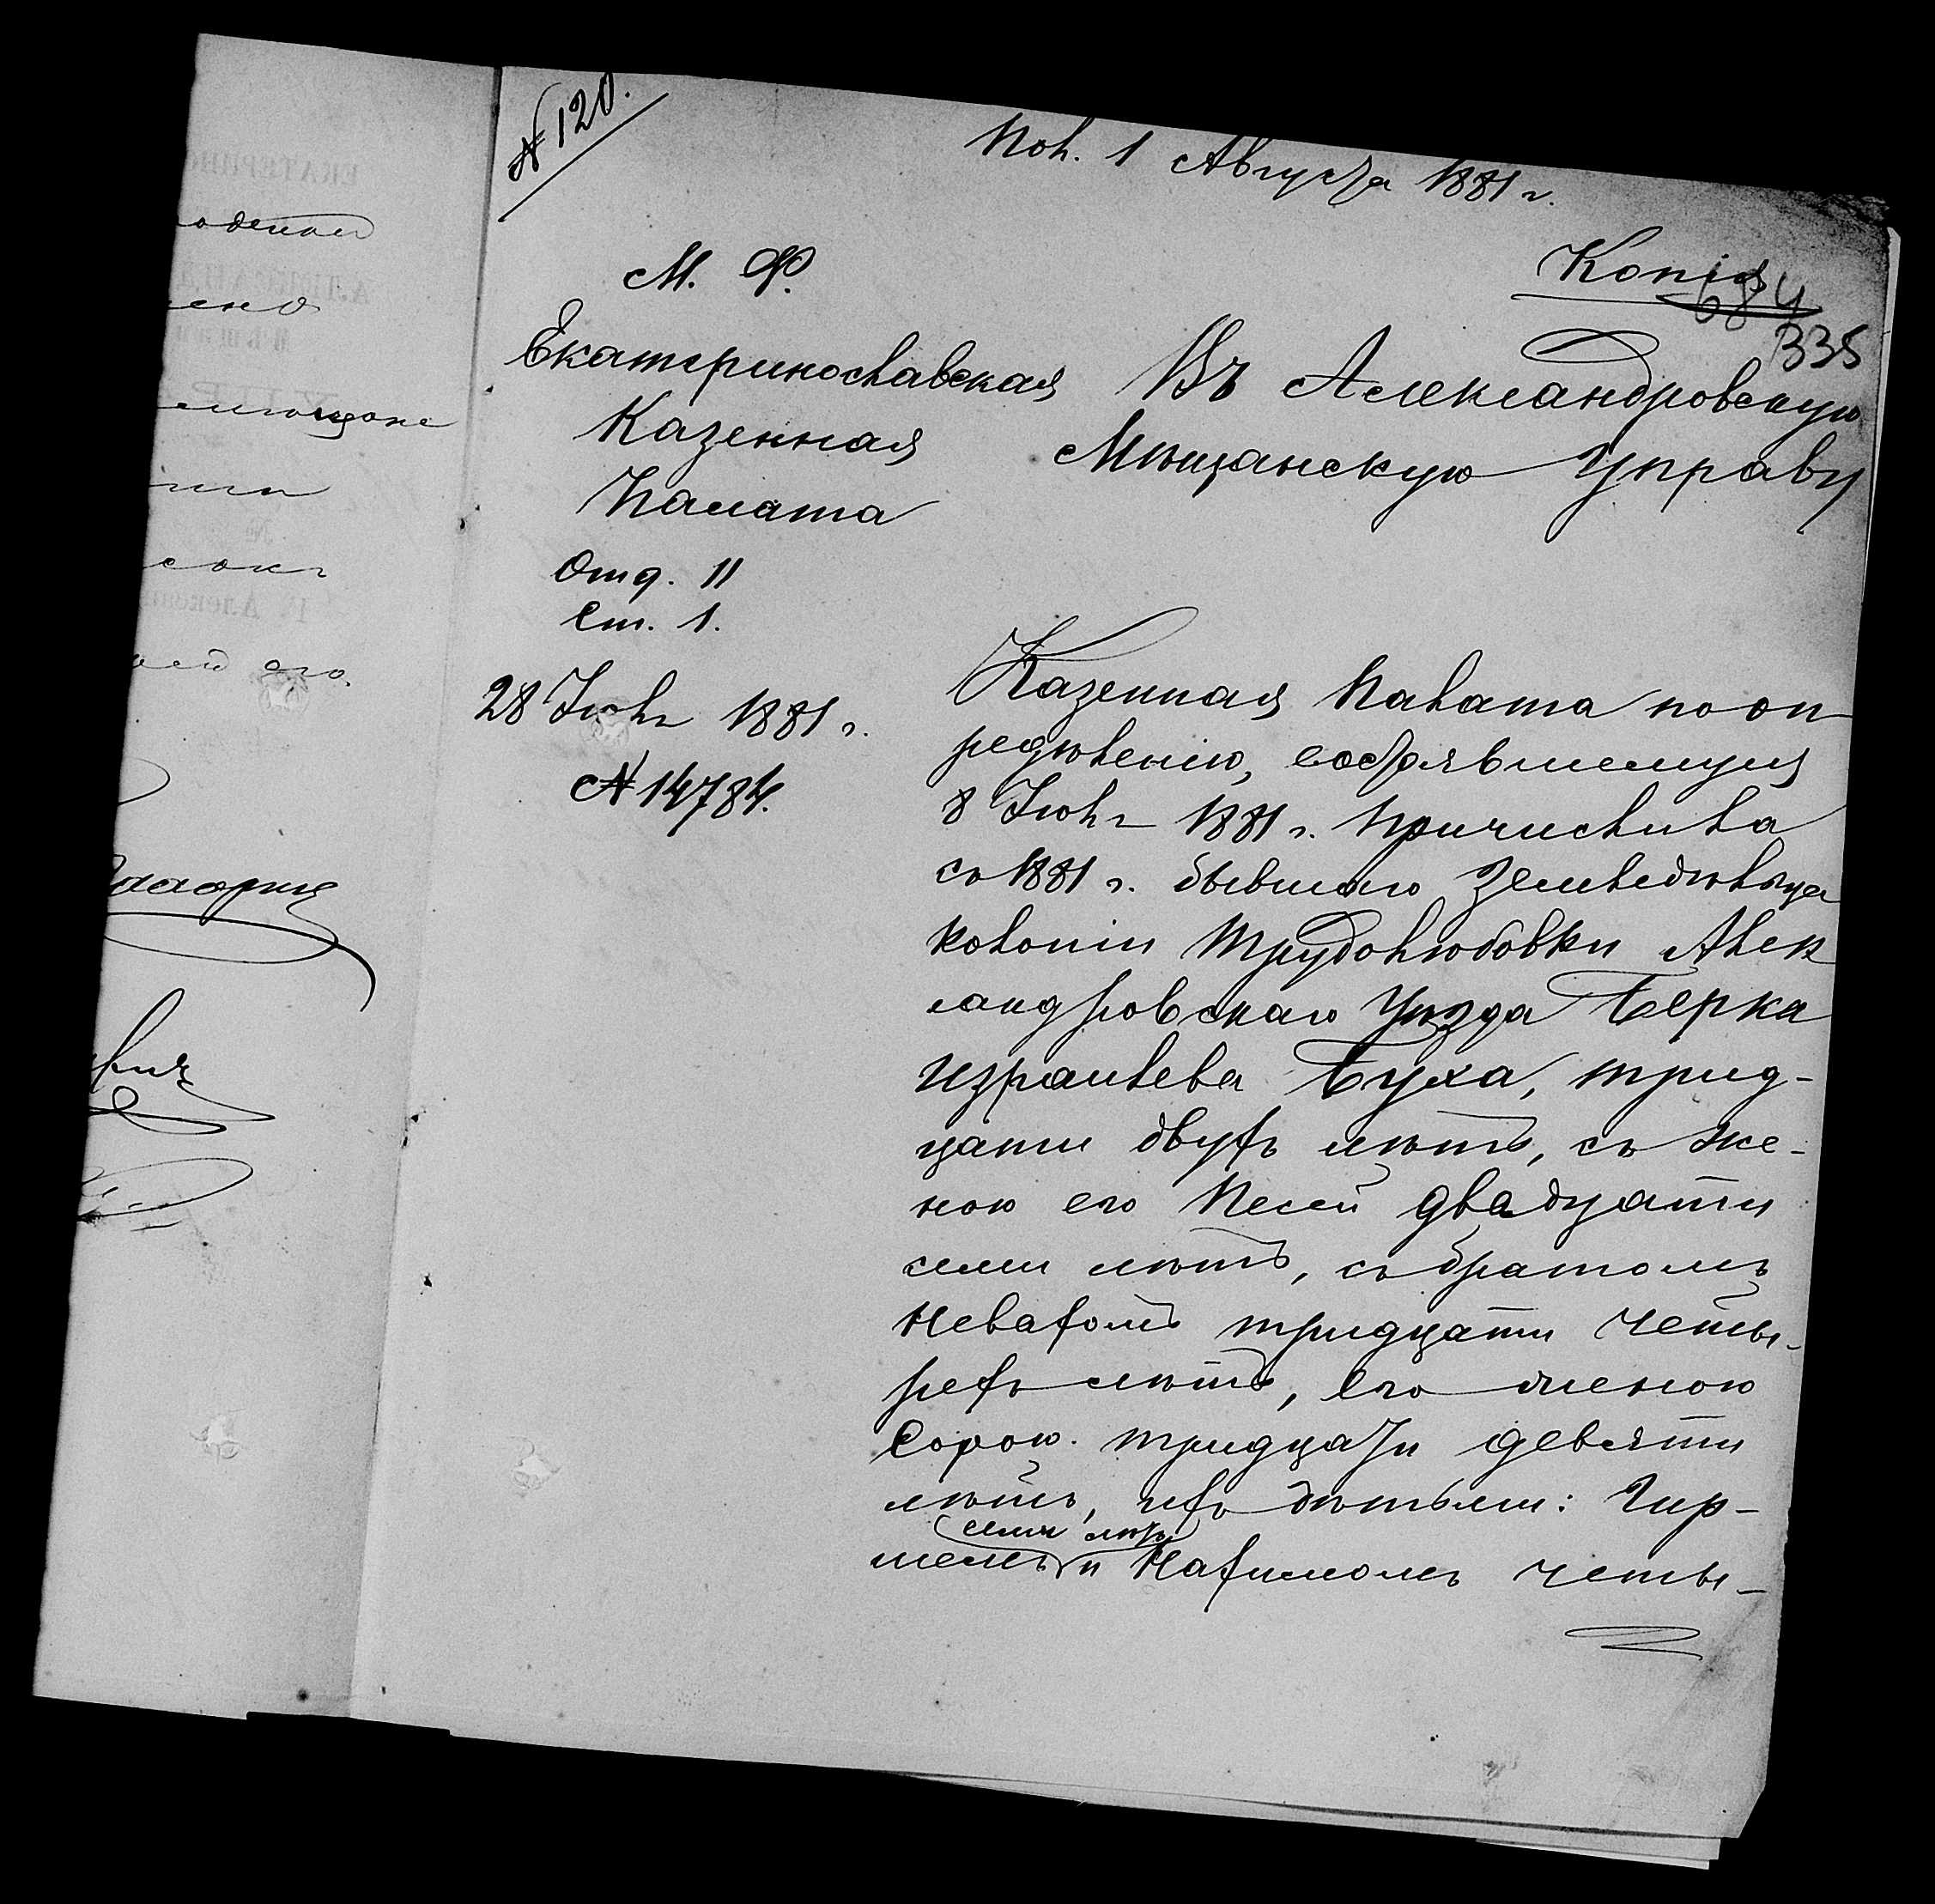 № 120.
Пол. 1 Августа 1881 г.
М. Ф.
Копія
684
335
Екатеринославская
Казенная
Палата
Отд. II
Ст. 1.
28 Іюля 1881 г.
№ 14784.
Въ Александровскую
Мѣщанскую Управу
Казенная Палата по оп
редѣленію, состоявшемуся
8 Іюля 1881 г. причислила
съ 1881 г. бывшаго земледѣльца
колоніи Трудолюбовки Алек
сандровскаго Уѣзда Берка
Израилева Буха, трид-
цати двухъ лѣтъ, съ же-
ною его Песей двадцати
семи лѣтъ, съ братомъ
Невахомъ тридцати четы-
рехъ лѣтъ, его женою
Сорою тридцати девяти
лѣтъ, ихъ дѣтьми: Гир-
семи лѣтъ
шемъ и Нахимомъ четы-
ено
ей его.